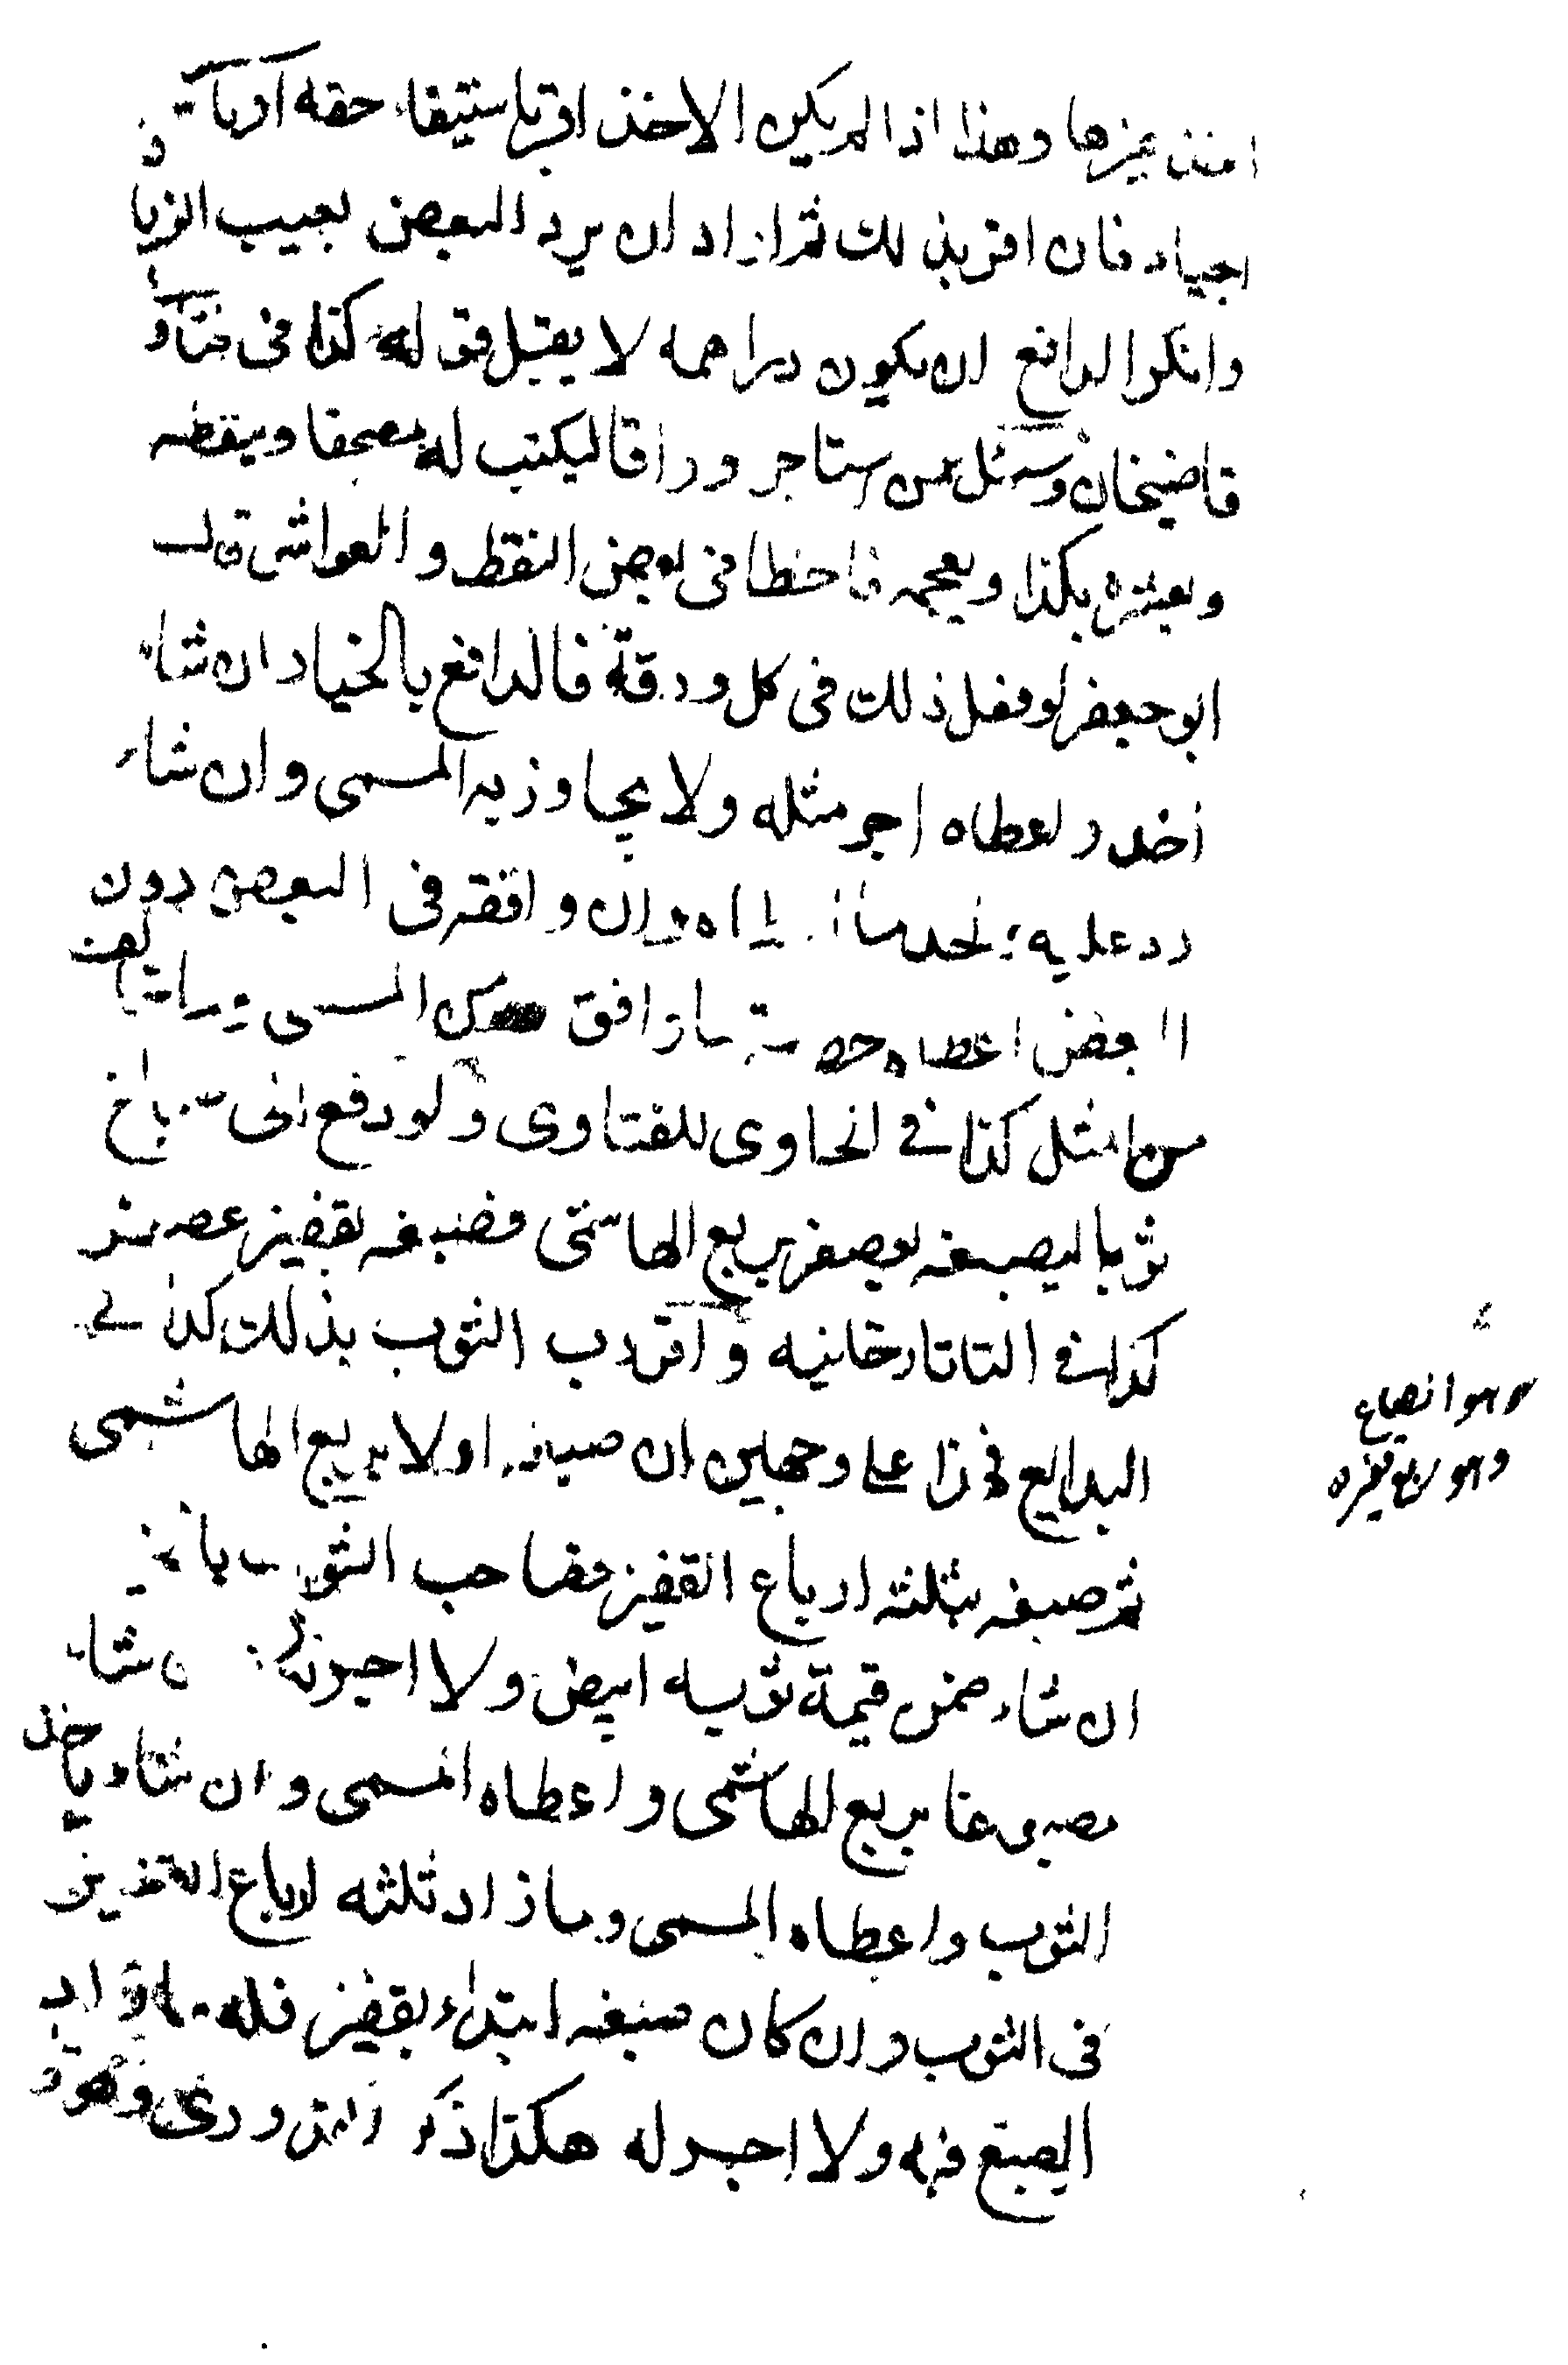 اخذ غيرها وهذا اذا لم يكن الاخذ اقر باستيفاء حقه او با
اجياد فان اقر بذلك ثم اراد ان يرد البعض بعيب الزيافـ
وانكر الدافع ان يكون دراهمه لا يقبل قوله كذا فى فتاوى
قاضيخان وسئل عمن استاجر وراقا ليكتب له مصحفا وينقطه
ويعشره بكذا ويعجمه فاخطا فى بعض النقط والعواشر قال
ابو جعفر لو فعل ذلك فى كل ورقة فالدافع بالخيار ان شاء
اخذ واعطاه اجر مثله ولا يجاوز به المسمى وان شاء
رد عليه وان وافقه فى البعض دون
البعض اعطاه حصة ما وافق من المسمى
من المثل كذا فى الحاوى للفتاوى ولو دفع الى صباغ
ثوبا ليصبغه بعصفر بربع الهاشمى فصبغه بقفيز عصفر
كذا فى التاتارخانيه واقر رب الثوب بذلك كذا فى
البدايع فهذا على وجهين ان صبغه اولا بربع الهاشمى
ثم صبغه بثلثه ارباع القفيز فصاحب الثوب بالخيـ
ان شاء ضمن قيمة ثوبه ابيض ولا اجر له ان شاء
مصبوغا بربع الهاشمى واعطاه المسمى وان شاء ياخذ
الثوب واعطاه المسمى وما زاد ثلثه ارباع القفيز
فى الثوب وان كان صبغه ابتداء بقفيز فله ما زاد
الصبغ فيه ولا اجر له هكذا ذكر القدورى وهو
وهو الصاع
وهو ربع قفيزه